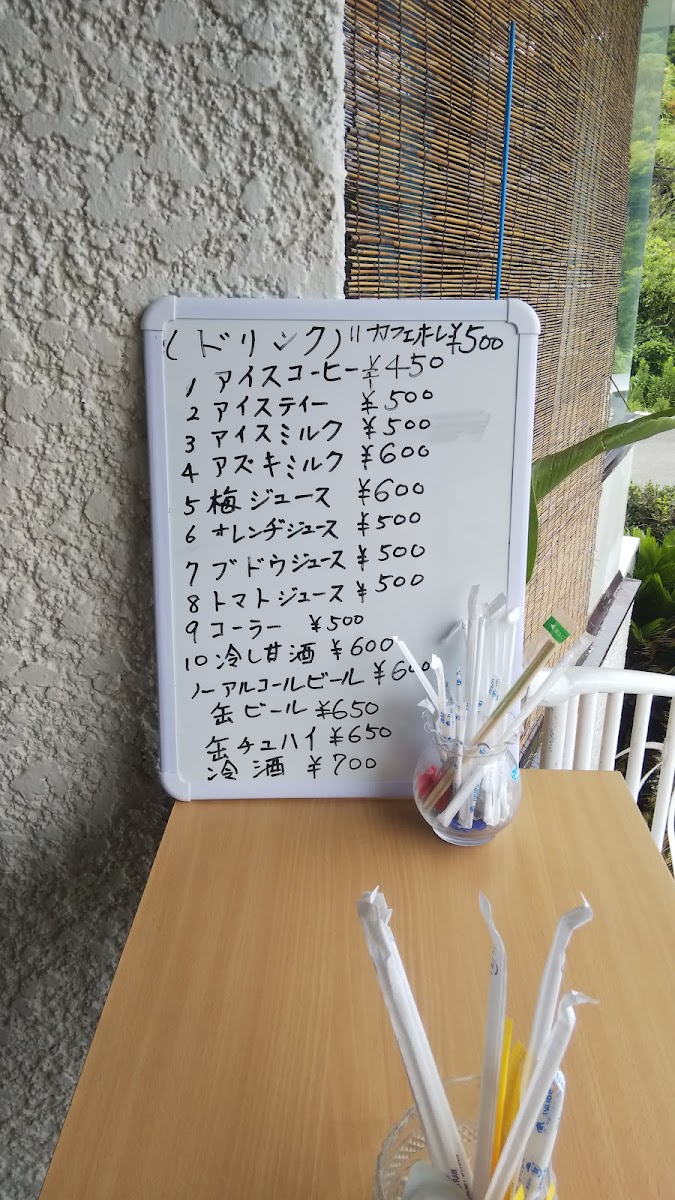 (ドリンク) 11 カフェオーレ ¥500
1 アイスコーヒー ¥450
2 アイスティー ¥500
3 アイスミルク ¥500
4 アズキミルク ¥600
5 梅ジュース ¥600
6 オレンヂジュース ¥500
7 ブドウジュース ¥500
8 トマトジュース ¥500
9 コーラー ¥500
10 冷し甘酒 ¥600
ノーアルコールビール ¥600
缶ビール ¥650
缶チュハイ ¥650
冷酒 ¥700